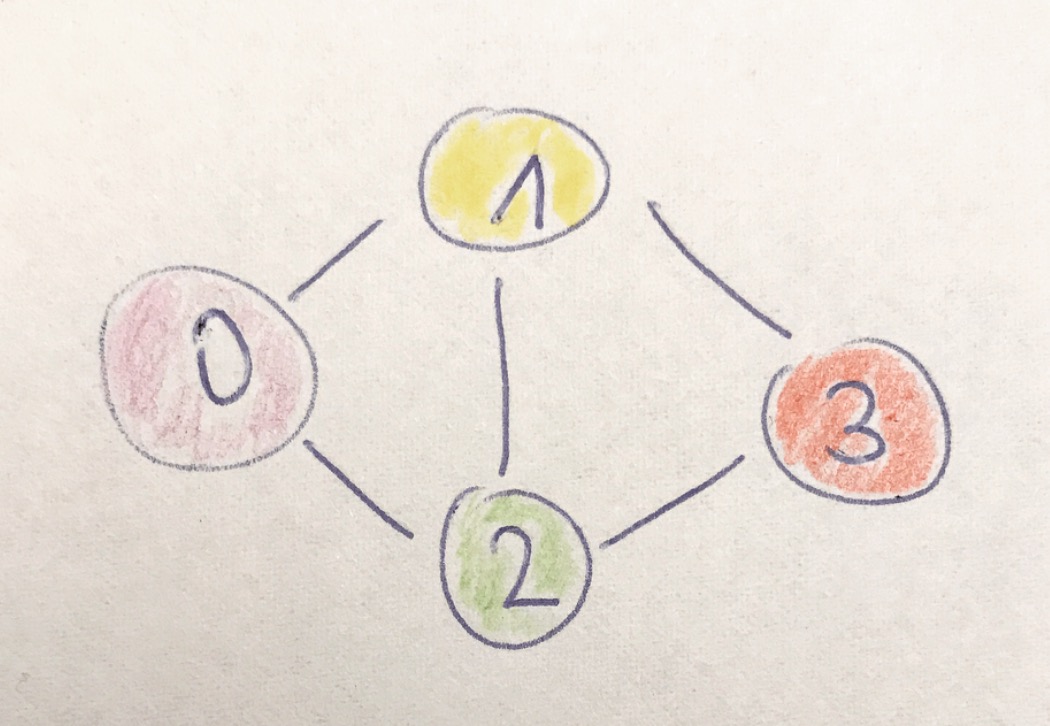 1
0
3
2